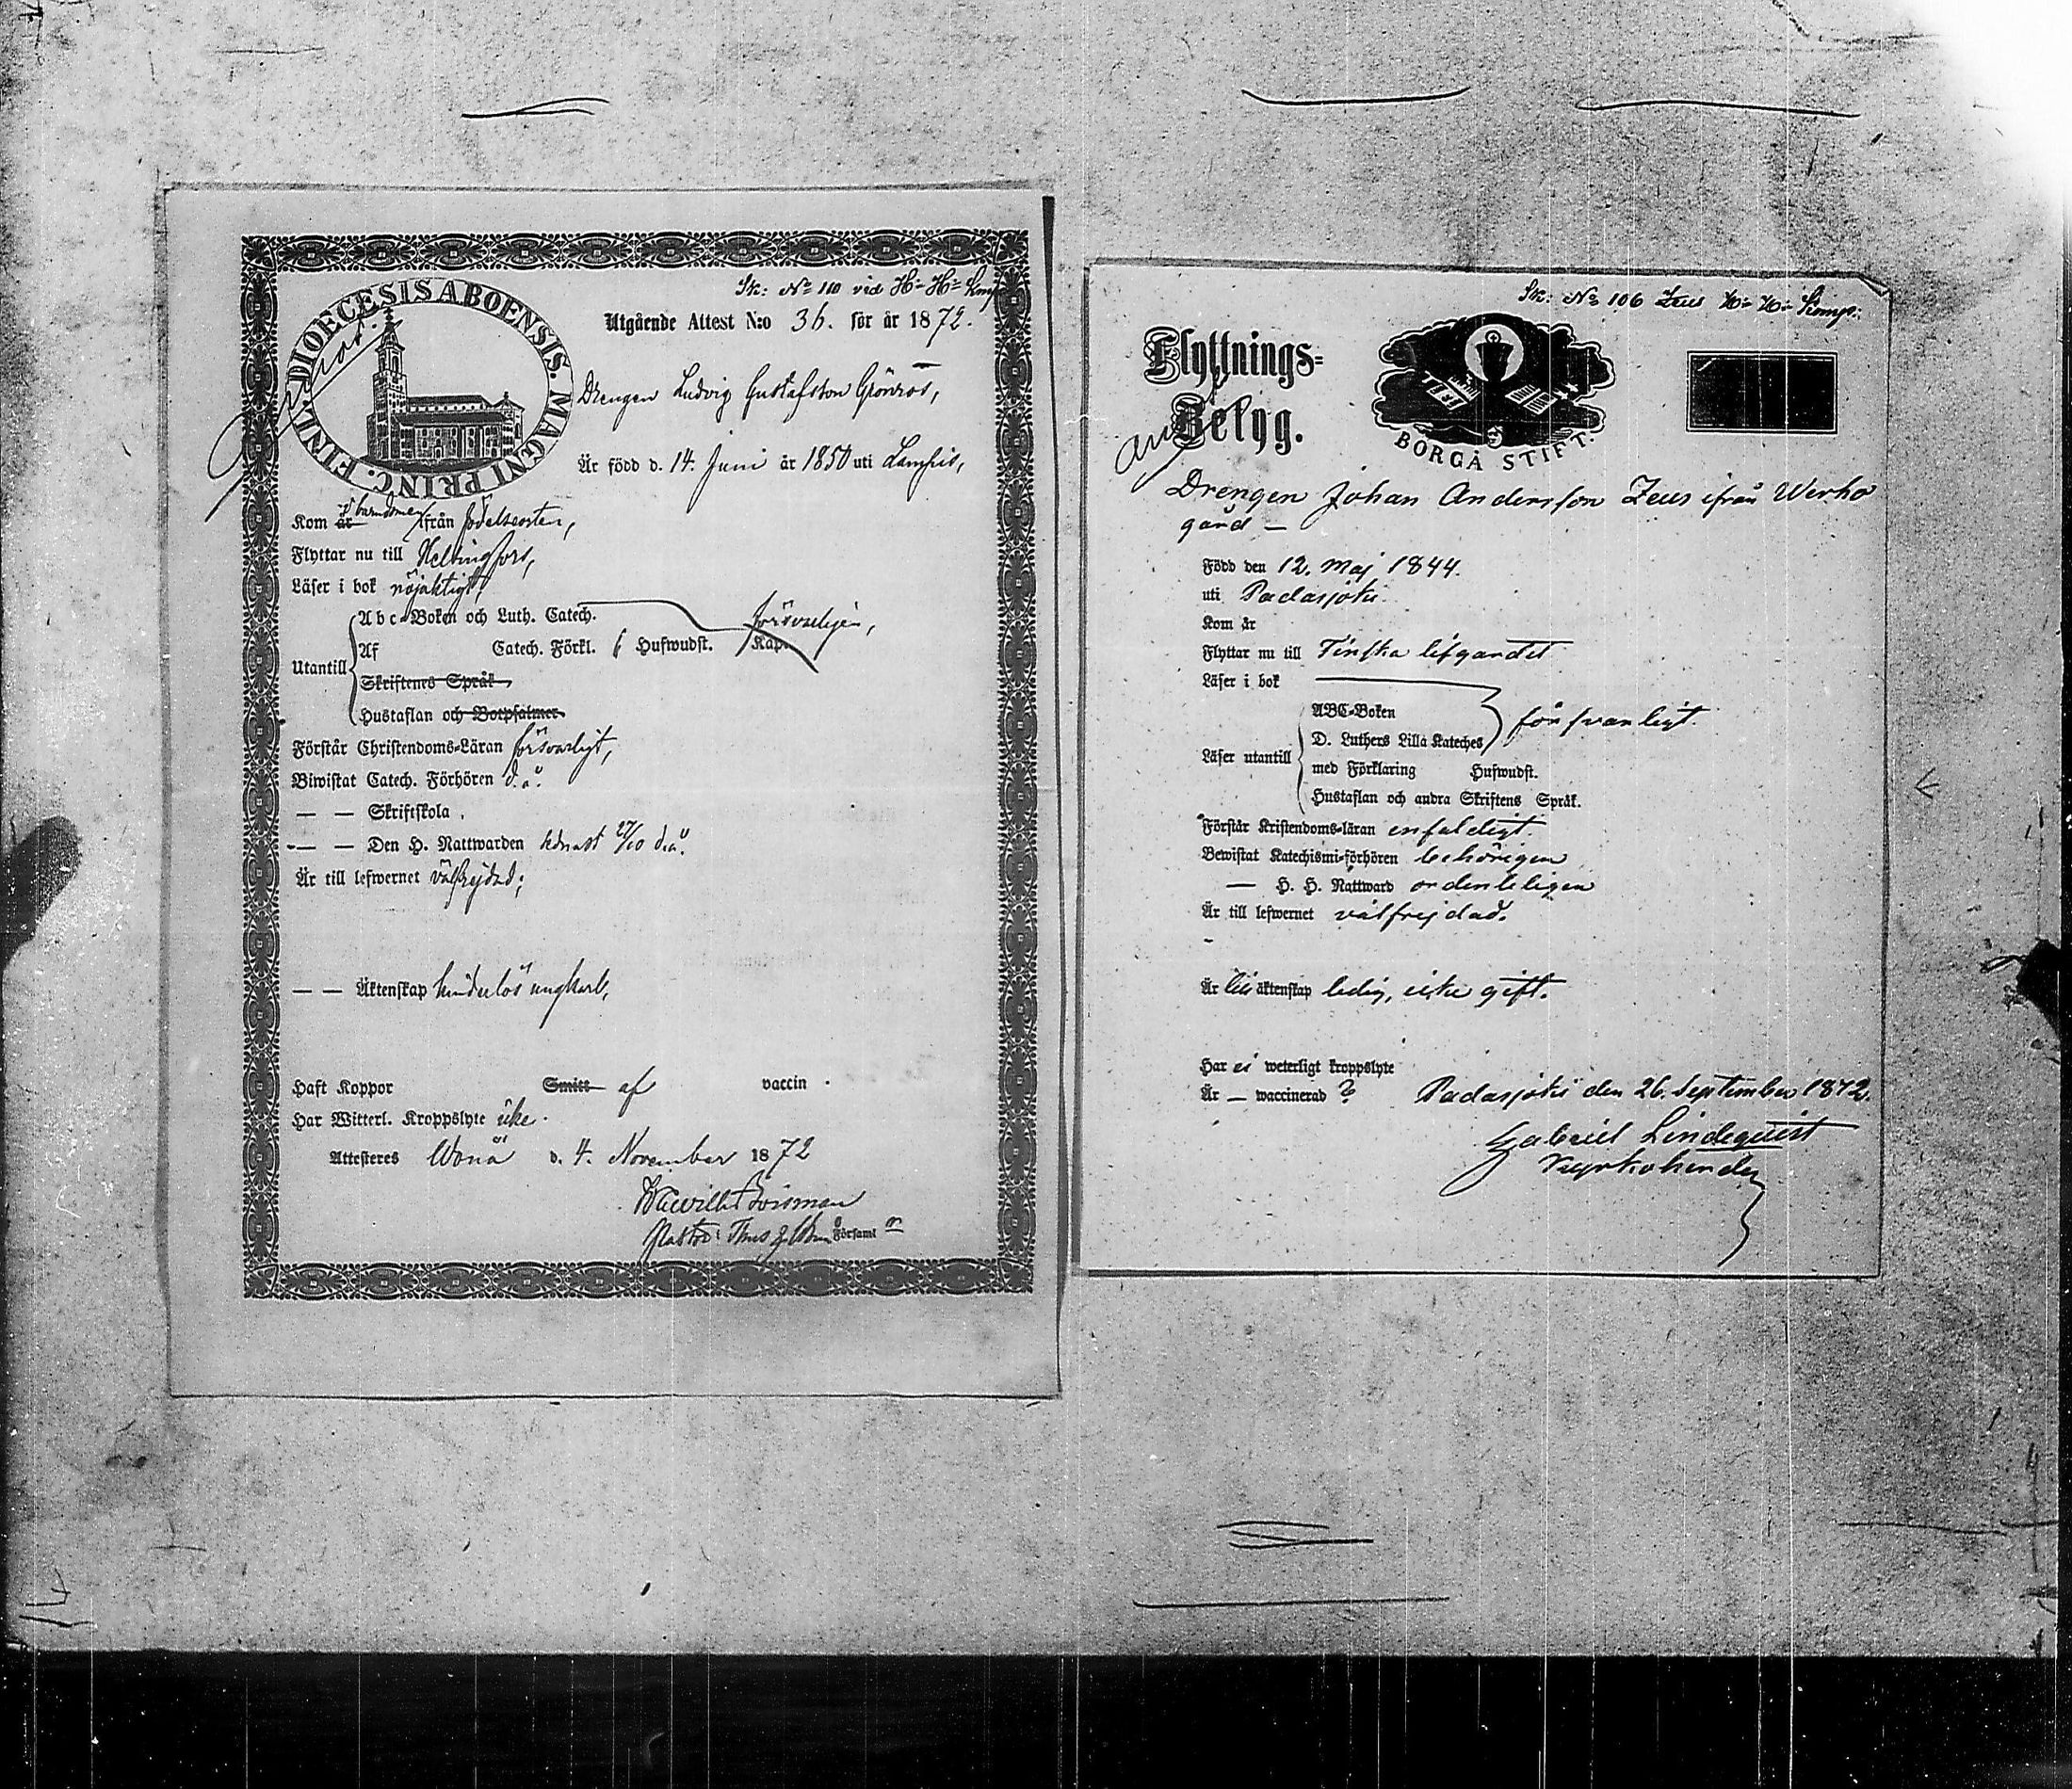 Sk: No 110 vid H. H. Komp
DIOECESIS ABOENSIS. MAGNI PRINC. FINL.
Utgående Attest N:o 36. för år 1872.
Drengen Ludvig Gustafsson Grönroos,
Är född d. 14. Juni år 1850 uti Lampis,
Kom år barndomen ifrån födelseorten,
Flyttar nu till Helsingfors,
Läser i bok nöjaktigt,
Utantill
Abc-Boken och Luth. Catech.
försvarligen,
Af Catech. Förkl. 6 Hufwudst. Kap.
Skriftenes Språk
Hustaflan och Botpsalmer.
Förstår Christendoms-Läran försvarligt,
Biwistat Catech. Förhören d. å.
— — Skriftskola
— — Den H. Nattwarden senast 27/10 d. å.
Är till lefwernet välfrejdad;
— — Äktenskap hinderlös ungkarl,
Haft Koppor Smitt af vaccin.
Har Witterl. Kroppslyte icke.
Attesteres Wånå d. 4. November 1872
Församl
Sk: No 106 Zeus H. H. Komp:
Flyttnings-
Betyg.
BORGÅ STIFT.
Drengen Johan Andersson Zeus ifrån Werho
gård —
Född den 12. Maj 1844.
uti Padasjoki.
Kom år
Flyttar nu till Finska lifgardet
Läser i bok
Läser utantill
ABC-Boken
D. Luthers Lilla Kateches
försvarligt.
med Förklaring Hufwudst.
Hustaflan och andra Skriftens Språk.
Förstår Kristendoms-läran enfaldigt.
Bewistat Katechismi-förhören behörigen
— H. H. Nattward ordentligen
Är till lefwernet välfrejdad.
Är till äktenskap ledig, icke gift.
Har ei weterligt kroppslyte
Är — waccinerad ?
Padasjoki den 26. September 1872.
Gabriel Lindequist
Kyrkoherde